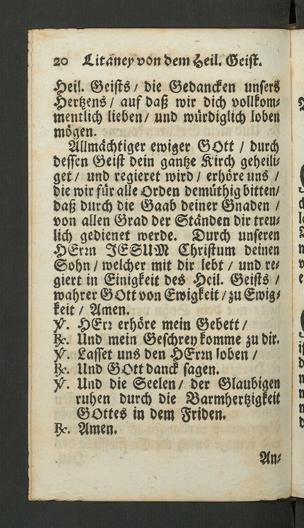 20 Litaney von dem Heil. Geist.
Heil. Geists / die Gedancken unsers
Hertzens / auf daß wir dich vollkom-
mentlich lieben / und würdiglich loben
mögen.
Allmächtiger ewiger GOtt / durch
dessen Geist dein gantze Kirch geheili-
get / und regieret wird / erhöre uns /
die wir für alle Orden demüthig bitten /
daß durch die Gaab deiner Gnaden /
von allen Grad der Ständen dir treu-
lich gedienet werde. Durch unseren
HErrn JESUM Christum deinen
Sohn / welcher mit dir lebt / und re-
giert in Einigkeit des Heil. Geists /
wahrer GOtt von Ewigkeit / zu Ewig-
keit / Amen.
℣. HErr erhöre mein Gebett /
℟. Und mein Geschrey komme zu dir.
℣. Lasset uns den HErrn loben /
℟. Und GOtt danck sagen.
℣. Und die Seelen / der Glaubigen
ruhen durch die Barmhertzigkeit
GOttes in dem Friden.
℟. Amen.
An-